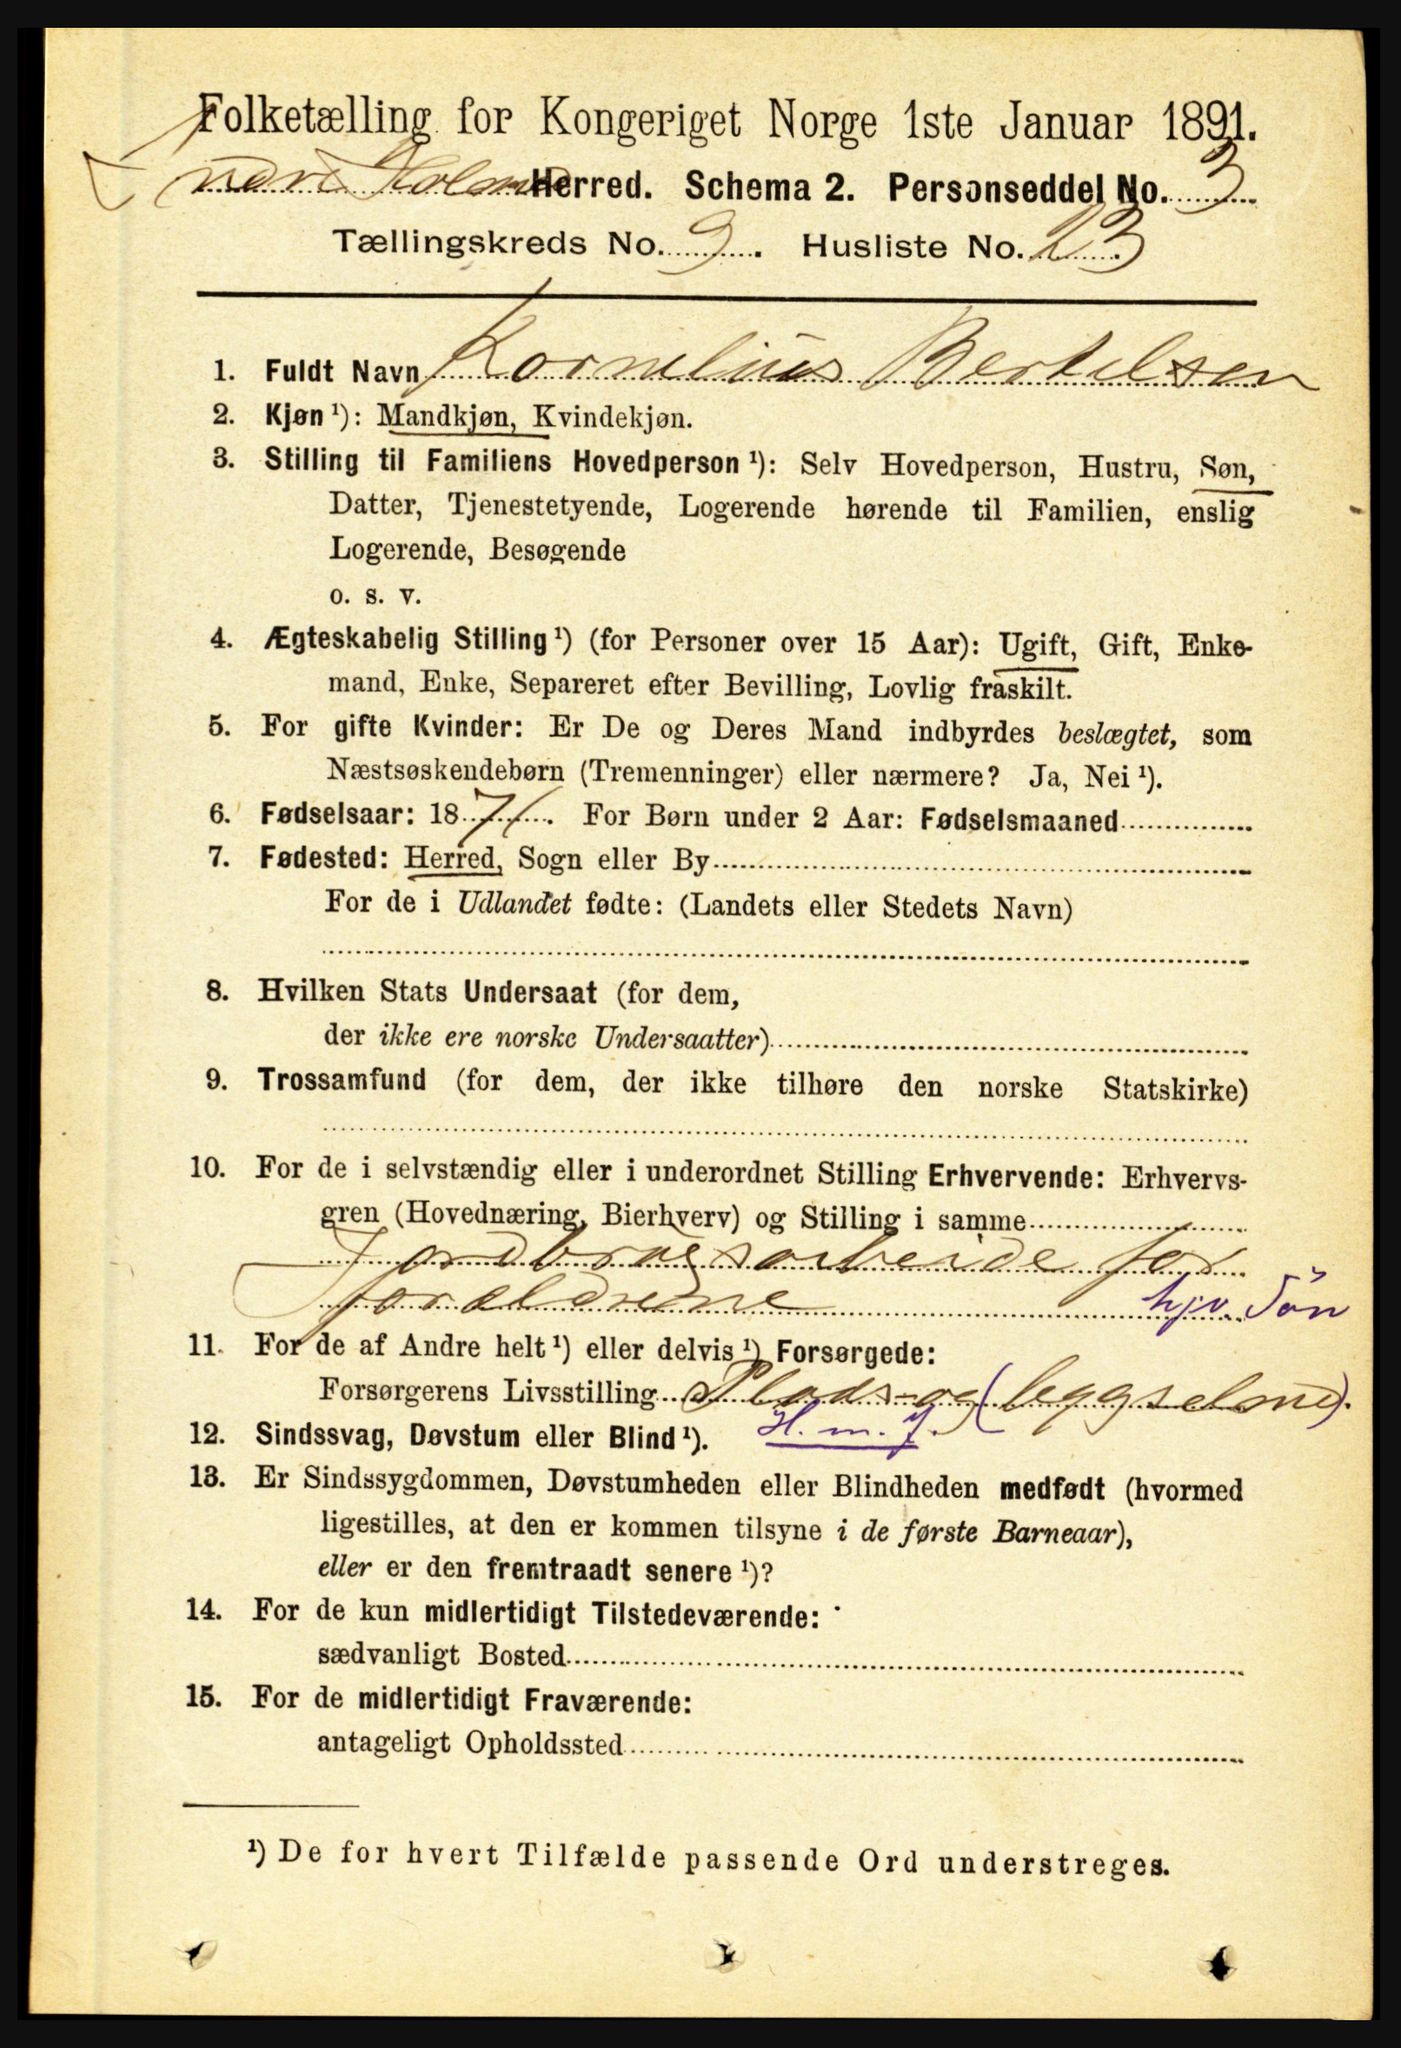 Folketælling for Kongeriget Norge 1ste Januar 1891.
Herred. Schema 2. Personseddel No. 3
Tællingskreds No. 9. Husliste No. 13.
1. Fuldt Navn Kornelius Bertelsen
2. Kjøn ¹): Mandkjøn, Kvindekjøn.
3. Stilling til Familiens Hovedperson ¹): Selv Hovedperson, Hustru, Søn,
Datter, Tjenestetyende, Logerende hørende til Familien, enslig
Logerende, Besøgende
o. s. v.
4. Ægteskabelig Stilling ¹) (for Personer over 15 Aar): Ugift, Gift, Enke-
mand, Enke, Separeret efter Bevilling, Lovlig fraskilt.
5. For gifte Kvinder: Er De og Deres Mand indbyrdes beslægtet, som
Næstsøskendebørn (Tremenninger) eller nærmere? Ja, Nei ¹).
6. Fødselsaar: 1871. For Børn under 2 Aar: Fødselsmaaned
7. Fødested: Herred, Sogn eller By
For de i Udlandet fødte: (Landets eller Stedets Navn)
8. Hvilken Stats Undersaat (for dem,
der ikke ere norske Undersaatter)
9. Trossamfund (for dem, der ikke tilhøre den norske Statskirke)
10. For de i selvstændig eller i underordnet Stilling Erhvervende: Erhvervs-
gren (Hovednæring, Bierhverv) og Stilling i samme
Jordbrugsarbeide for
forældrene hjv Sön
11. For de af Andre helt ¹) eller delvis ¹) Forsørgede:
Forsørgerens Livsstilling Plads-og
12. Sindssvag, Døvstum eller Blind ¹). H. m. J.
13. Er Sindssygdommen, Døvstumheden eller Blindheden medfødt (hvormed
ligestilles, at den er kommen tilsyne i de første Barneaar),
eller er den fremtraadt senere ¹)?
14. For de kun midlertidigt Tilstedeværende:
sædvanligt Bosted
15. For de midlertidigt Fraværende:
antageligt Opholdssted
¹) De for hvert Tilfælde passende Ord understreges.